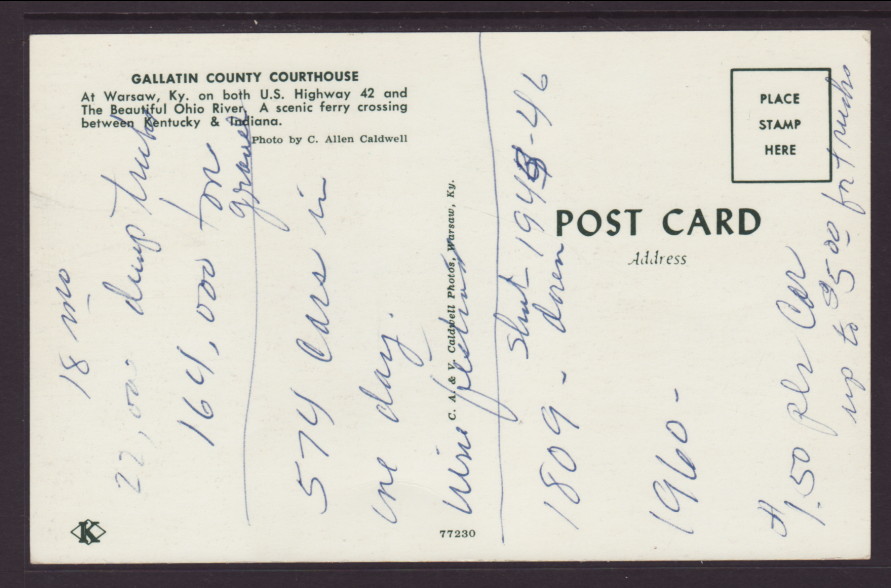 GALLATIN COUNTY COURTHOUSE
At Warsaw, Ky. on both U.S. Highway 42 and
The Beautiful Ohio River. A scenic ferry crossing
between Kentucky & Indiana.
Photo by C. Allen Caldwell
C. A. & V. Caldwell Photos, Warsaw, Ky.
PLACE
STAMP
HERE
POST CARD
Address
K
77230
18 mo
22,000 dump trucks
164,000 ton
gravel
574 cars in
one day.
wine festival
shut 1945-46
1809 -
1960 -
$1.50 per car
up to $5.00 for trucks